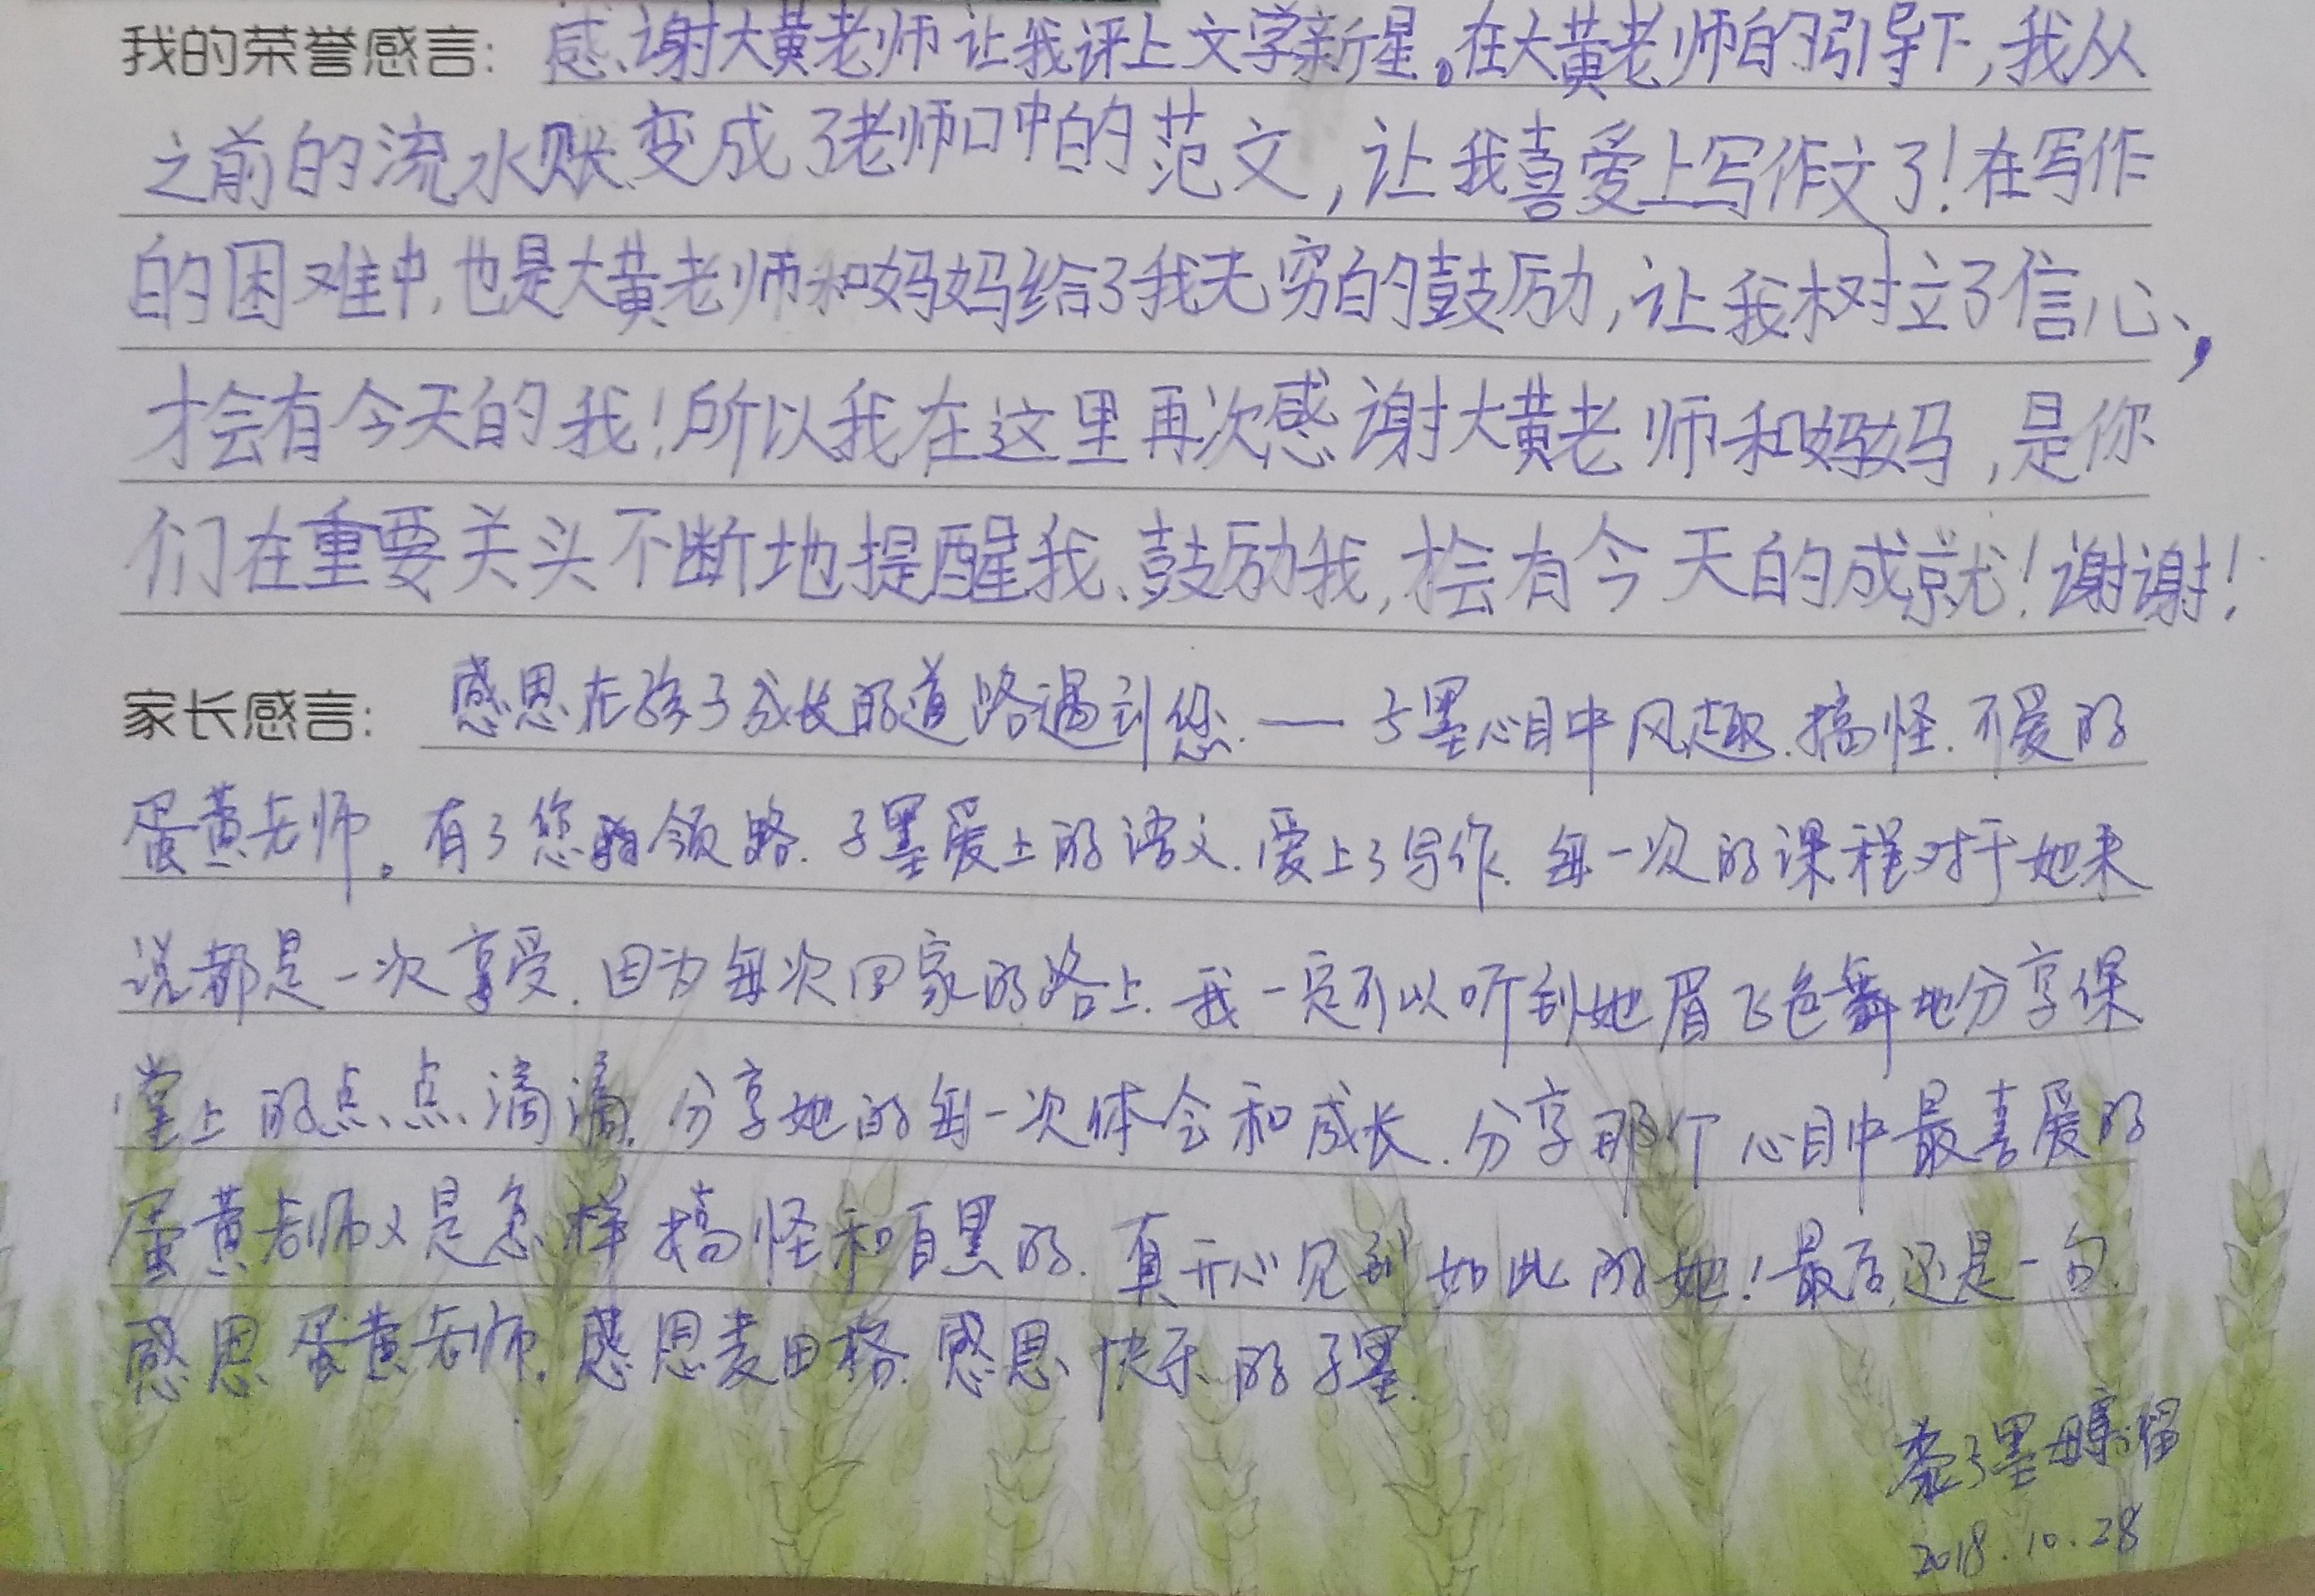 我的荣誉感言：感谢大黄老师让我评上文学新星。在大黄老师的引导下，我从
之前的流水账变成了老师口中的范文，让我喜爱上写作文了！在写作
的困难中，也是大黄老师和妈妈给了我无穷的鼓励，让我树立了信心，
才会有今天的我！所以我在这里再次感谢大黄老师和妈妈，是你
们在重要关头不断地提醒我、鼓励我，才会有今天的成就！谢谢！
家长感言：感恩在孩子成长的道路遇到您.——子墨心目中风趣.搞怪.可爱的
蛋黄老师。有了您的领路.子墨爱上的语文.爱上了写作.每一次的课程对于她来
说都是一次享受.因为每次回家的路上.我一定可以听到她眉飞色舞地分享课
堂上的点点滴滴.分享她的每一次体会和成长.分享那个心目中最喜爱的
蛋黄老师又是怎样搞怪和自黑的.真开心见到如此的她！最后还是一句.
感恩蛋黄老师.感恩麦田格.感恩快乐的子墨.
黎子墨母亲留
2018.10.28